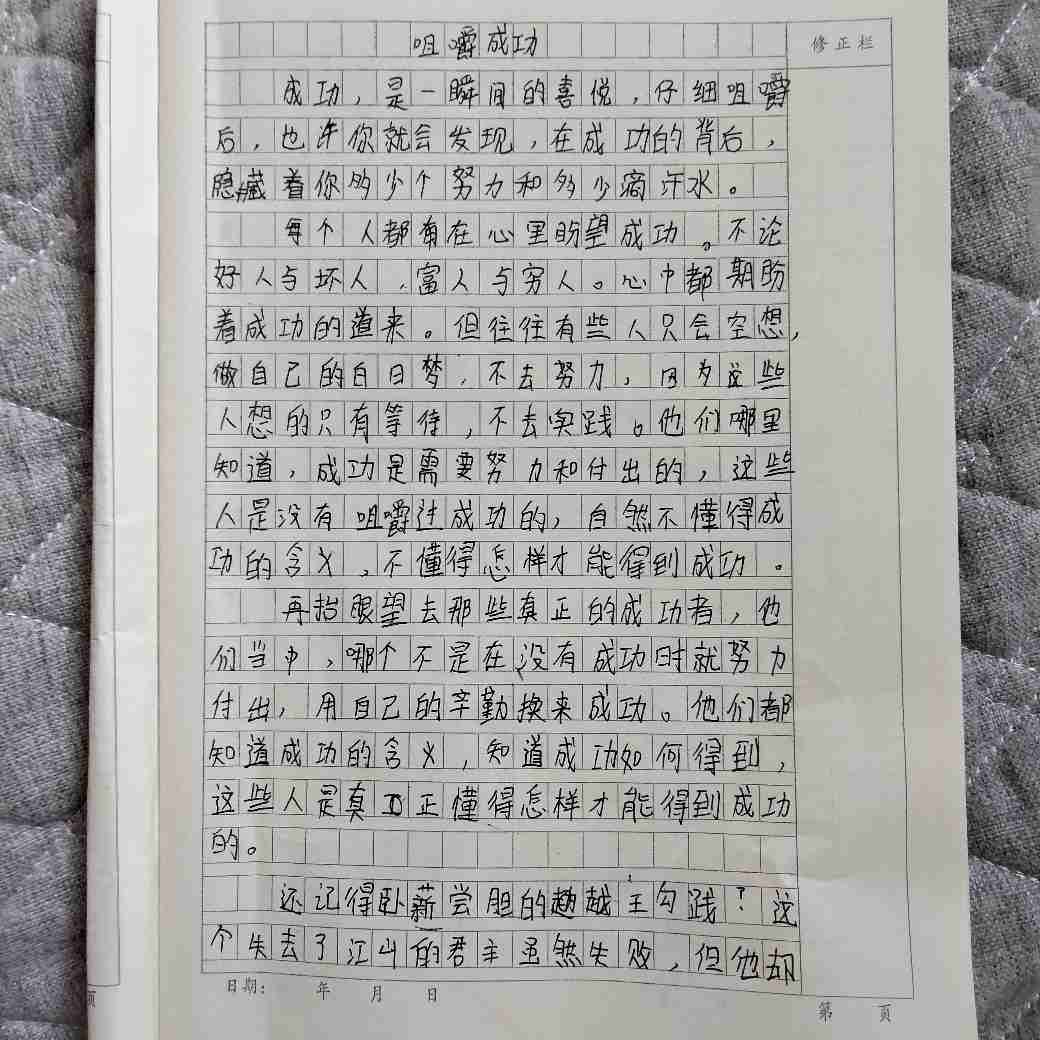 咀嚼成功
修正栏
成功，是一瞬间的喜悦，仔细咀嚼
后，也许你就会发现，在成功的背后，
隐藏着你多少个努力和多少滴汗水。
每个人都有在心里盼望成功。不论
好人与坏人，富人与穷人。心中都期盼
着成功的道来。但往往有些人只会空想，
做自己的白日梦，不去努力，因为这些
人想的只有等待，不去实践。他们哪里
知道，成功是需要努力和付出的，这些
人是没有咀嚼过成功的，自然不懂得成
功的含义，不懂得怎样才能得到成功。
再抬眼望去那些真正的成功者，他
们当中，哪个不是在没有成功时就努力
付出，用自己的辛勤换来成功。他们都
知道成功的含义，知道成功如何得到，
这些人是真正懂得怎样才能得到成功
的。
还记得卧薪尝胆的越王勾践？这
个失去了江山的君主虽然失败，但他却
日期： 年 月 日
第 页
页